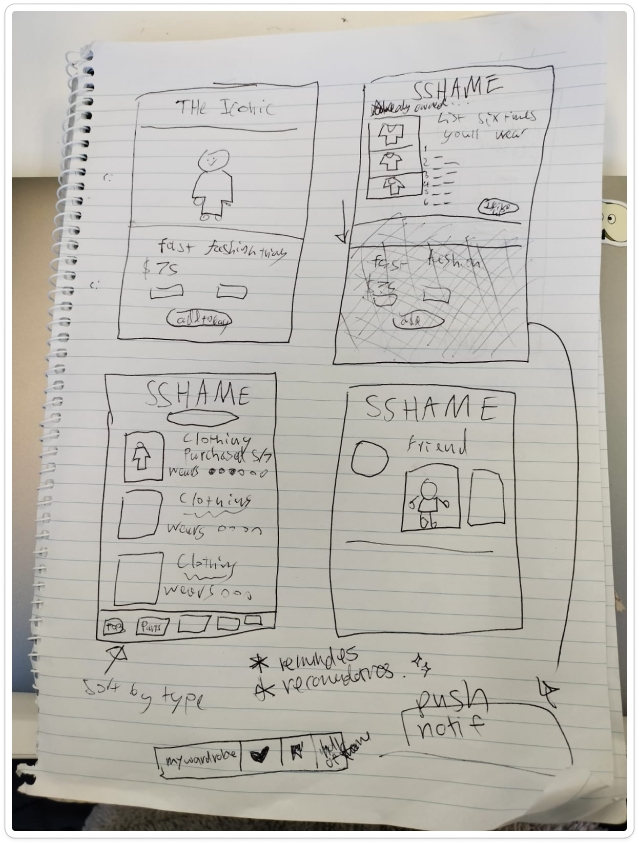 THE Iconic
fast fashion thing
$75
add to bag
SSHAME
Already owned...
List six times
you'll wear
1
2
3
4
5
6
fast fashion
$75
add
SSHAME
Clothing
Purchased 5/7
wears
Clothing
wears
Clothing
wears
Tops
Pants
SSHAME
Friend
sort by type
* reminders
push
notif
my wardrobe